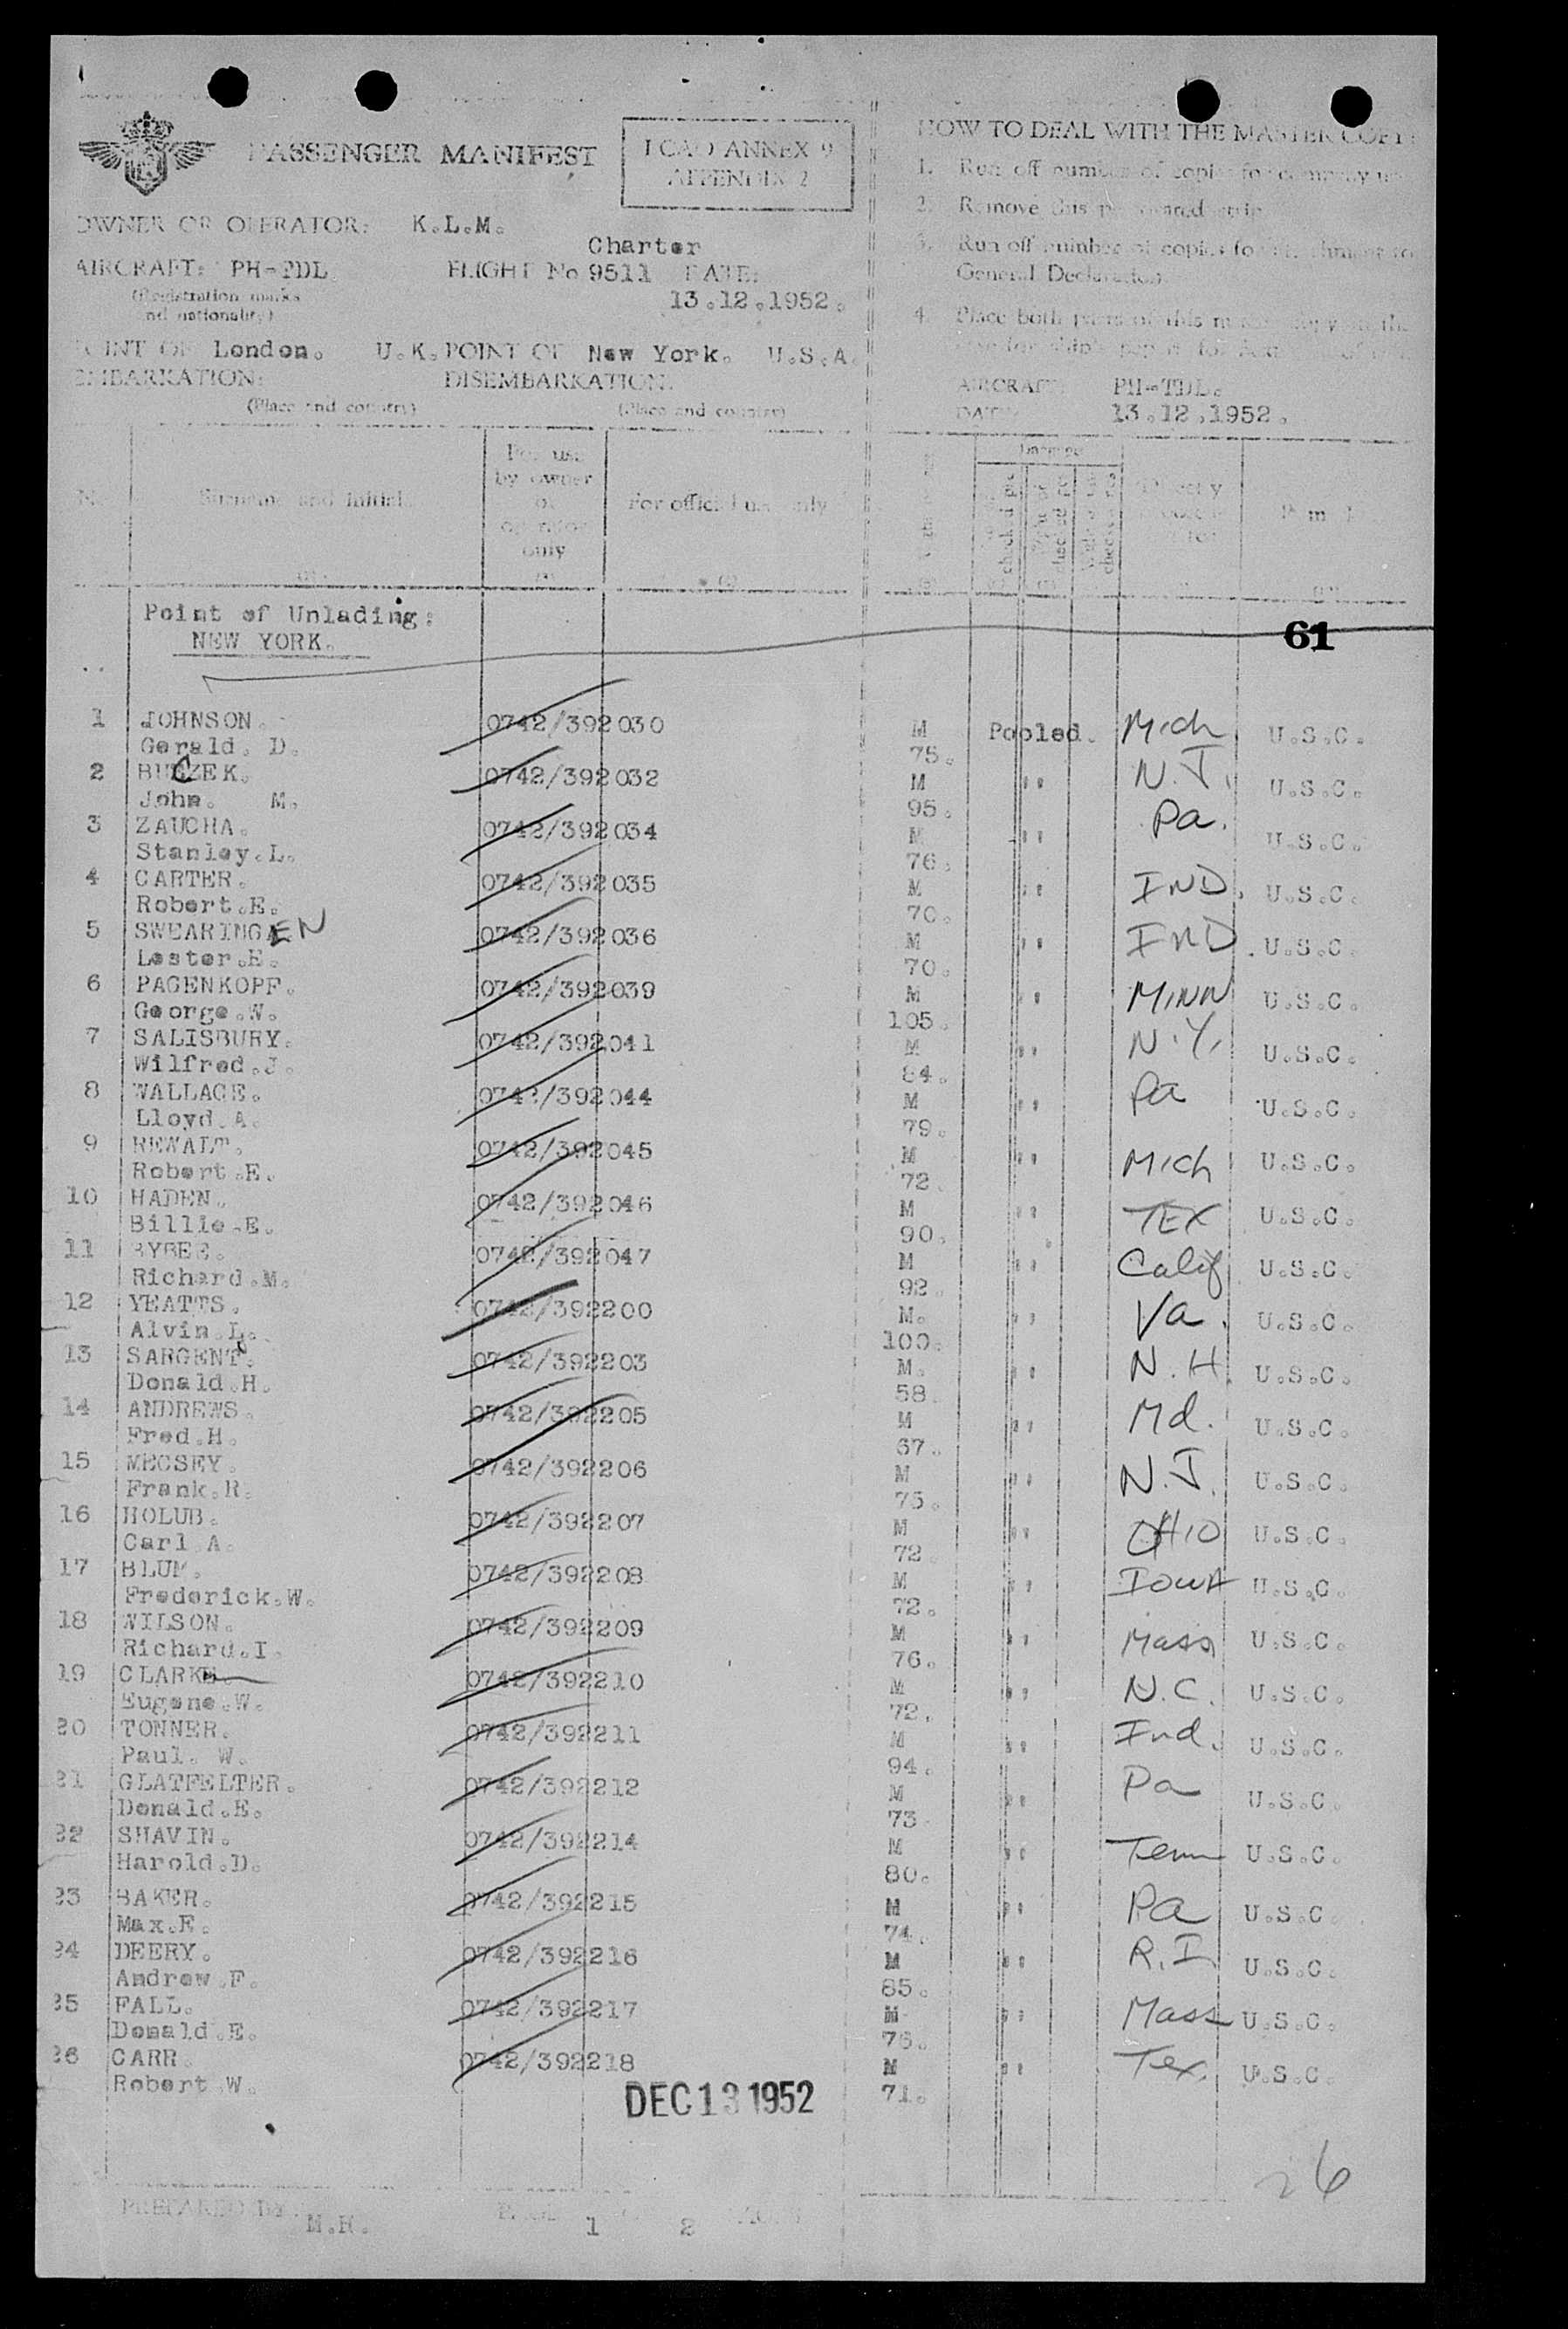 PASSENGER MANIFEST
ICAO ANNEX 9
APPENDIX 2
OWNER OR OPERATOR: K.L.M.
Charter
AIRCRAFT: PH-TDL FLIGHT No 9511 DATE:
(Registration marks
and nationality)
13.12.1952.
POINT OF London. U.K. POINT OF New York. U.S.A.
EMBARKATION: DISEMBARKATION:
(Place and country) (Place and country)
HOW TO DEAL WITH THE MASTER COPY:
1. Run off number of copies for company use
2. Remove this perforated strip
3. Run off number of copies for attachment to
General Declaration.
4. Place both parts of this master copy in the
AIRCRAFT: PH-TDL.
DATE: 13.12.1952.
No. Surname and initials
For use
by owner
or
operator
only
For official use only
Point of Unlading:
NEW YORK.
61
1 JOHNSON. 0742/392030 M Pooled. Mich U.S.C.
Gerald. D. 75.
2 BUCZEK. 0742/392032 M " N.J. U.S.C.
John. M. 95.
3 ZAUCHA. 0742/392034 M " Pa. U.S.C.
Stanley.L. 76.
4 CARTER. 0742/392035 M " IND. U.S.C.
Robert.E. 70.
5 SWEARINGEN 0742/392036 M " IND. U.S.C.
Lester.E. 70.
6 PAGENKOPF. 0742/392039 M " MINN U.S.C.
George.W. 105.
7 SALISBURY. 0742/392041 M " N.Y. U.S.C.
Wilfred.J. 84.
8 WALLACE. 0742/392044 M " Pa U.S.C.
Lloyd.A. 79.
9 REWALT. 0742/392045 M " Mich U.S.C.
Robert.E. 72.
10 HADEN. 0742/392046 M " TEX U.S.C.
Billie.E. 90.
11 BYBEE. 0742/392047 M " Calif U.S.C.
Richard.M. 92.
12 YEATTS. 0742/392200 M. " Va. U.S.C.
Alvin.L. 100.
13 SARGENT. 0742/392203 M. " N.H. U.S.C.
Donald.H. 58.
14 ANDREWS. 0742/392205 M " Md. U.S.C.
Fred.H. 67.
15 MECSEY. 0742/392206 M " N.J. U.S.C.
Frank.R. 75.
16 HOLUB. 0742/392207 M " OHIO U.S.C.
Carl.A. 72
17 BLUM. 0742/392208 M " IOWA U.S.C.
Frederick.W. 72.
18 WILSON. 0742/392209 M " Mass U.S.C.
Richard.I. 76.
19 CLARK 0742/392210 M " N.C. U.S.C.
Eugene.W. 72.
20 TONNER. 0742/392211 M " Ind. U.S.C.
Paul. W. 94.
21 GLATFELTER. 0742/392212 M " Pa U.S.C.
Donald.E. 73.
22 SHAVIN. 0742/392214 M " Tenn U.S.C.
Harold.D. 80.
23 BAKER. 0742/392215 M " Pa U.S.C.
Max.E. 74.
24 DEERY. 0742/392216 M " R.I. U.S.C.
Andrew.F. 85.
25 FALL. 0742/392217 M " Mass U.S.C.
Donald.E. 75.
26 CARR. 0742/392218 M " Tex. U.S.C.
Robert.W. 71.
DEC 13 1952
26
PREPARED BY M.H. PAGE 1 2